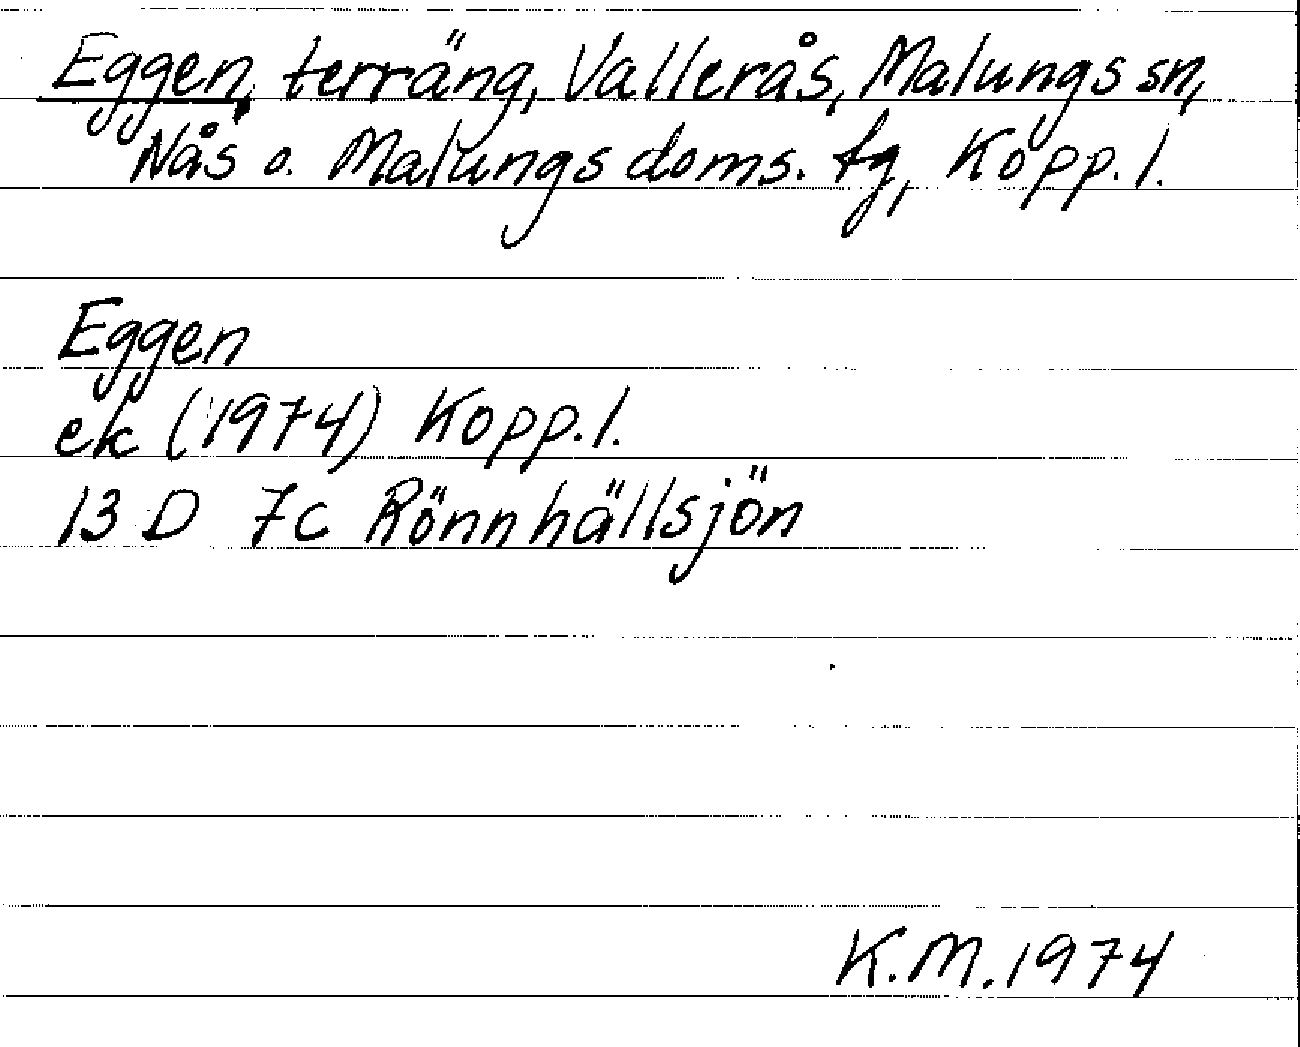 Eggen, terräng, Vallerås, Malungs sn,
Nås o. Malungs doms. tg, Kopp. l.
Eggen
ek (1974) Kopp. l.
13 D 7c Rönnhällsjön
K.M. 1974